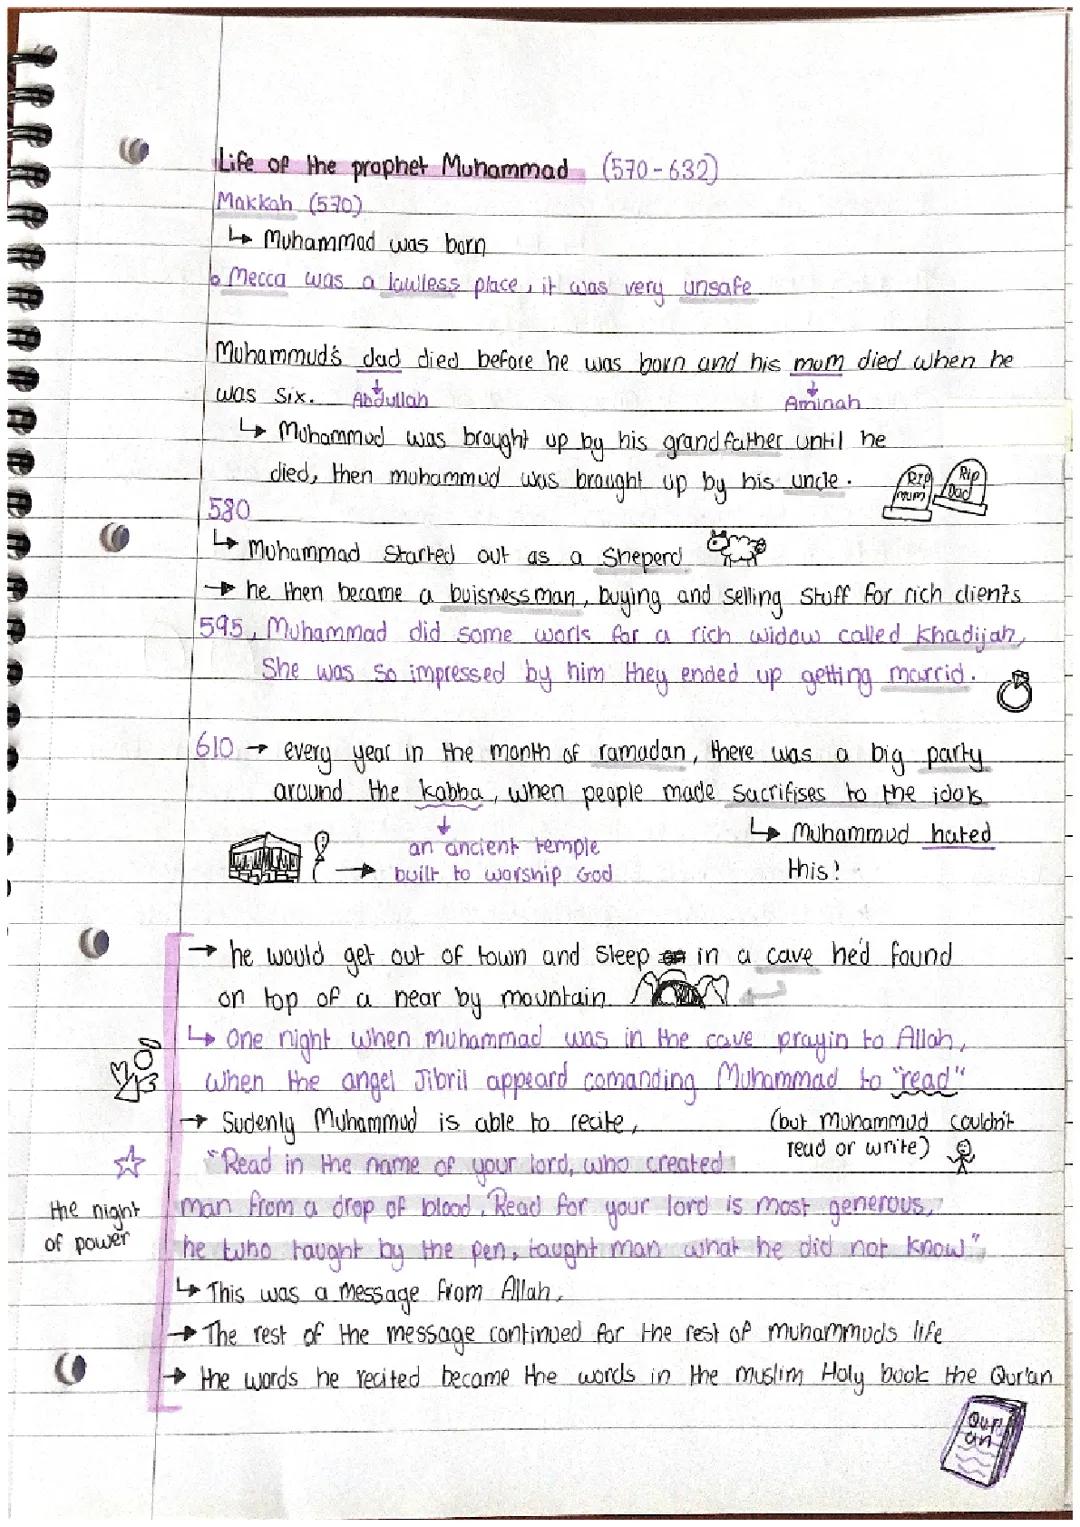 Life of the prophet Muhammad (570-632)
Makkah (570)
↳ Muhammad was born
Mecca was a lawless place, it was very unsafe
Muhammud's dad died before he was born and his mum died when he
was six. Abdullah Aminah
↳ Muhammud was brought up by his grandfather until he
died, then muhammud was brought up by his uncle.
RIP mum
RIP Dad
580
↳ Muhammad Started out as a Sheperd
→ he then became a buisnessman, buying and selling stuff for rich clients
595, Muhammad did some work for a rich widow called Khadijah,
She was so impressed by him they ended up getting marrid.
610 → every year in the month of ramadan, there was a big party
around the kabba, when people made sacrifises to the idols
↳ Muhammud hated
this!
an ancient temple
→ built to worship God
→ he would get out of town and sleep in a cave he'd found
on top of a near by mountain
↳ One night when muhammad was in the cave prayin to Allah,
when the angel Jibril appeard comanding Muhammad to "read"
→ Sudenly Muhammud is able to recite,
(but Muhammud couldn't
read or write)
"Read in the name of your lord, who created
man from a drop of blood. Read for your lord is most generous,
he who taught by the pen, taught man what he did not know".
the night
of power
↳ This was a message from Allah.
→ The rest of the message continued for the rest of muhammuds life
→ the words he recited became the words in the muslim Holy book the Qur'an
Qur
an